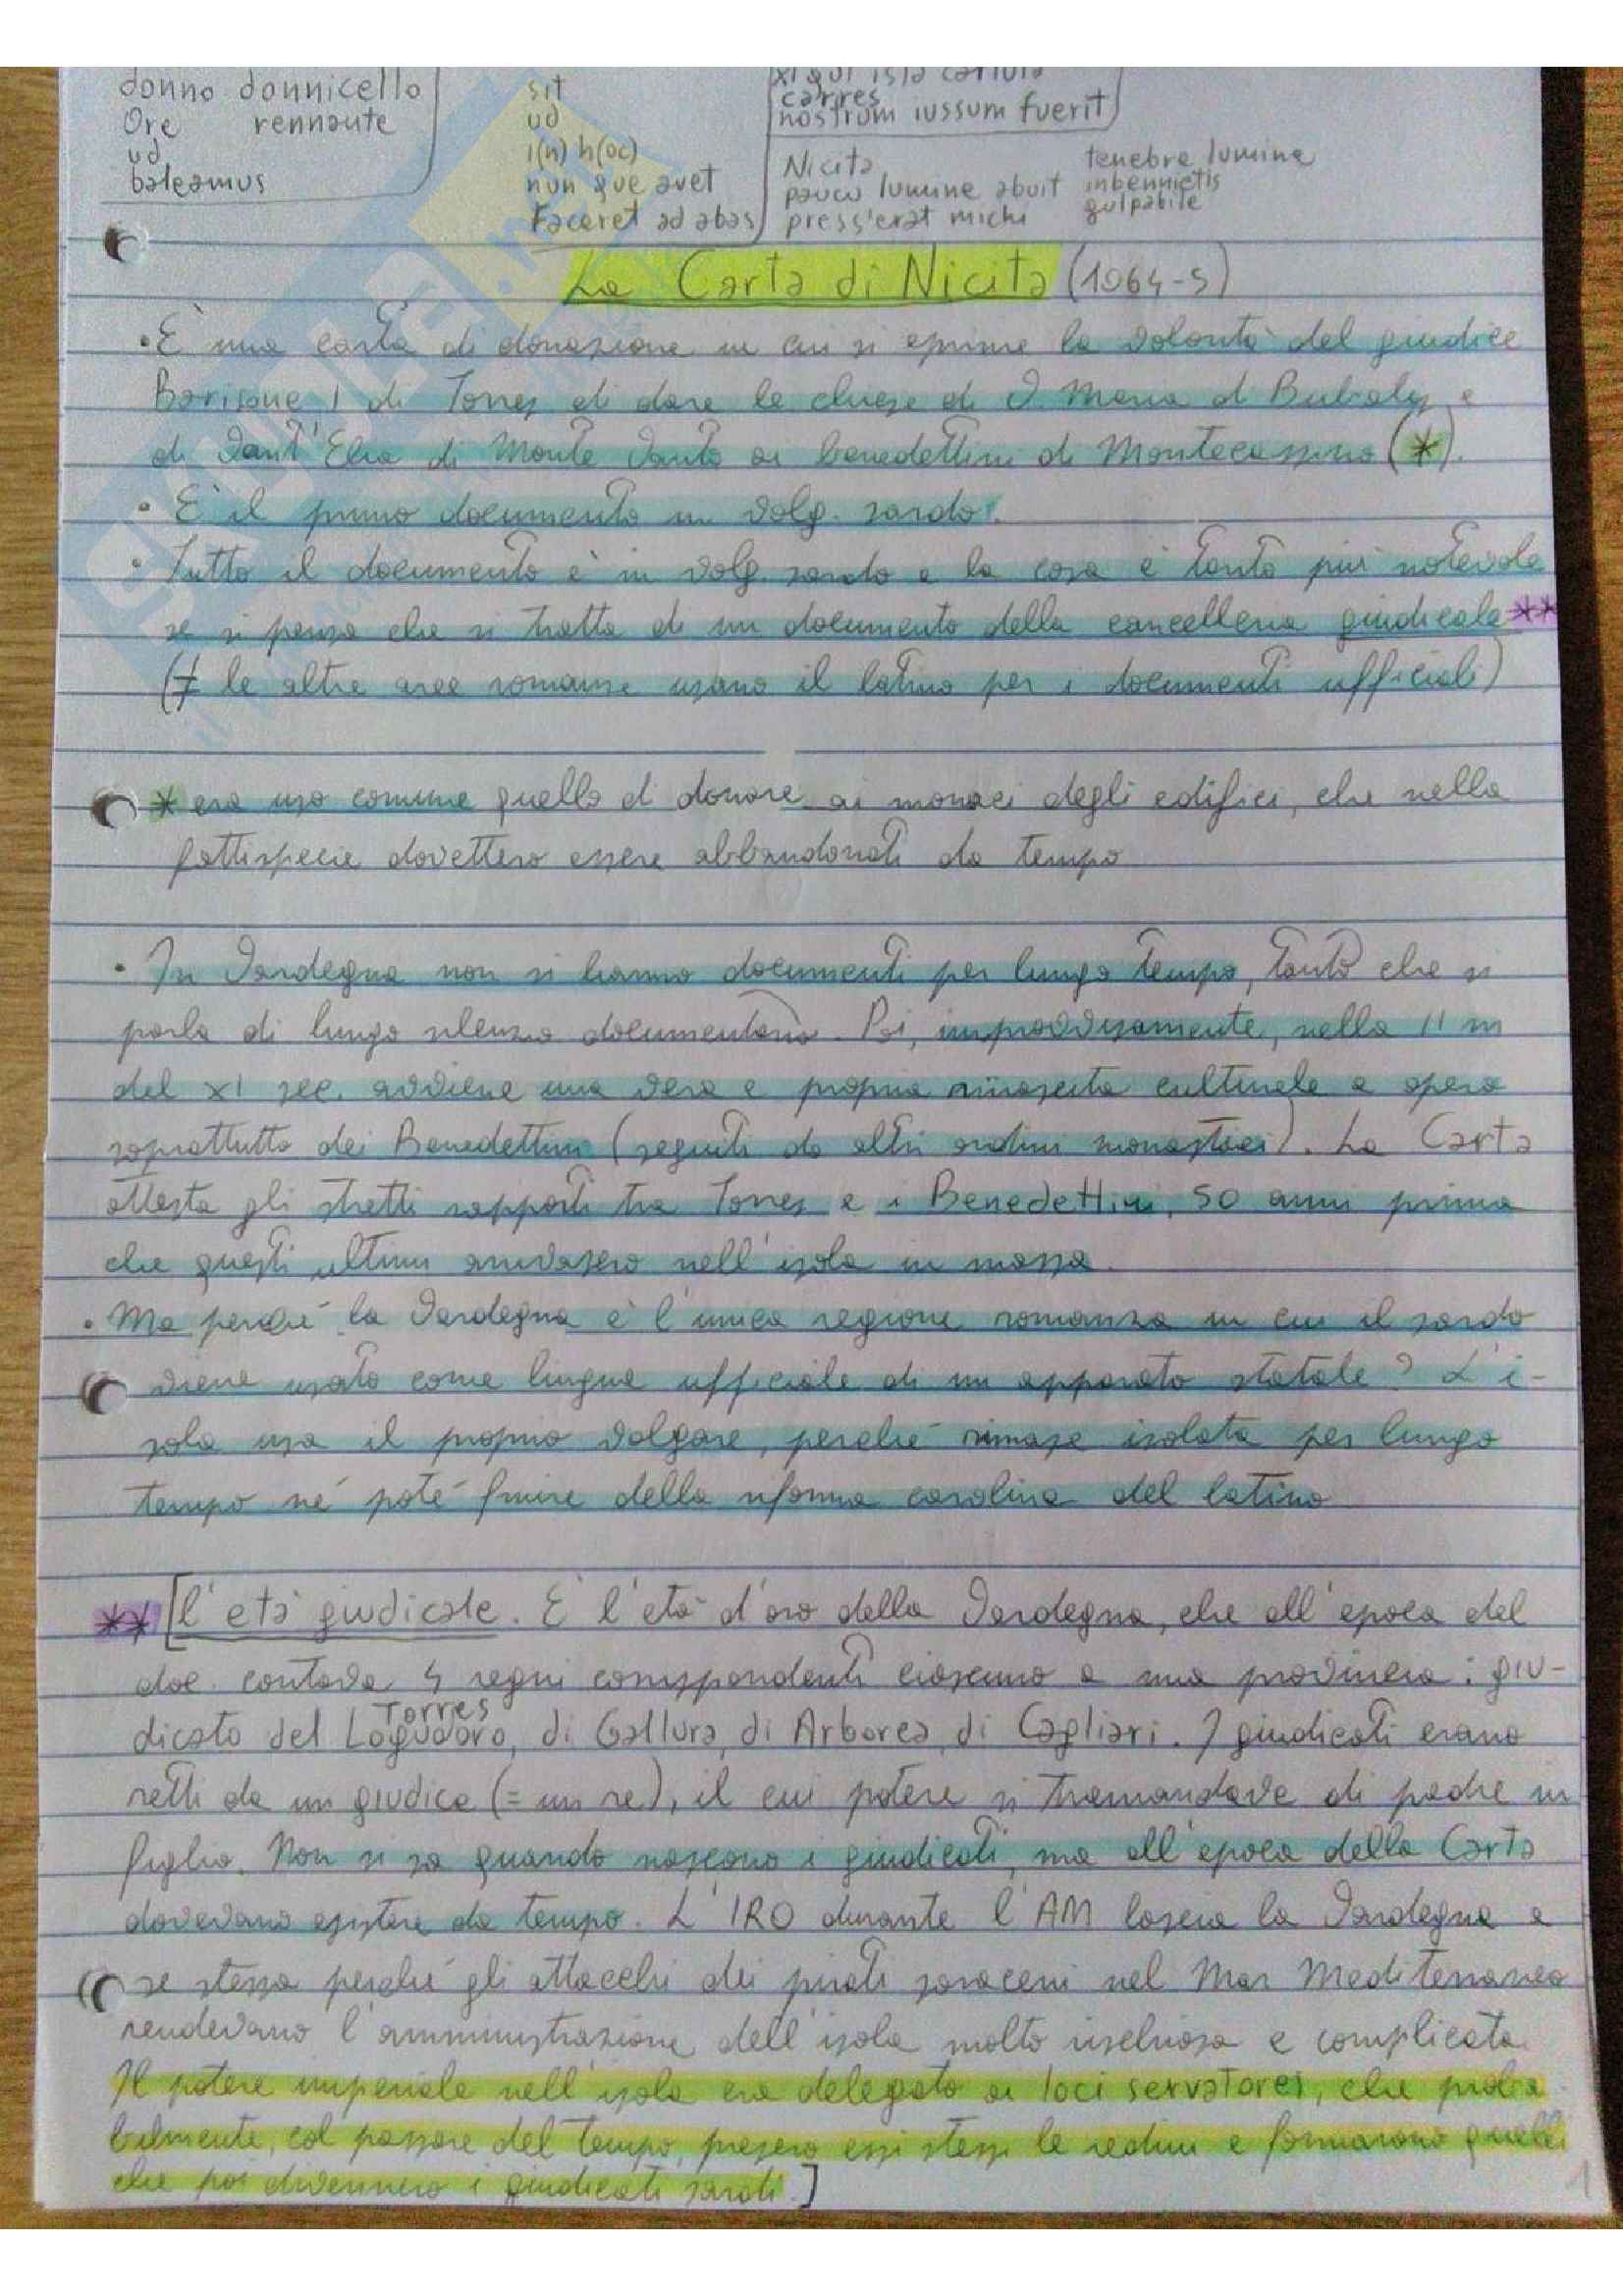 donno donnicello
Ore rennante
ud
baleamus
sit
ud
i(n) h(oc)
nun que avet
Faceret ad abas
carres
nostrum iussum fuerit
Nicita
paucu lumine abuit
press'erat michi
tenebre lumine
inbennictis
gulpabile
La Carta di Nicita (1064-5)
• È una carta di donazione in cui si esprime la volontà del giudice
Barisone I di Torres di dare le chiese di S. Maria di Bubalis e
di Sant'Elia di Monte Santo ai benedettini di Montecassino (*).
• È il primo documento in volg. sardo.
• Tutto il documento è in volg. sardo e la cosa è tanto più notevole
se si pensa che si tratta di un documento della cancelleria giudicale **
(≠ le altre aree romanze usano il latino per i documenti ufficiali)
* era uso comune quello di donare ai monaci degli edifici, che nella
fattispecie dovettero essere abbandonati da tempo
• In Sardegna non si hanno documenti per lungo tempo, tanto che si
parla di lungo silenzio documentario. Poi, improvvisamente, nella II m
del XI sec. avviene una vera e propria rinascita culturale a opera
soprattutto dei Benedettini (seguiti da altri ordini monastici). La Carta
attesta gli stretti rapporti tra Torres e i Benedettini, 50 anni prima
che questi ultimi arrivassero nell'isola in massa.
• Ma perché la Sardegna è l'unica regione romanza in cui il sardo
viene usato come lingua ufficiale di un apparato statale? L'i-
sola usa il proprio volgare, perché rimase isolata per lungo
tempo né poté fruire della riforma carolina del latino
** [l'età giudicale. È l'età d'oro della Sardegna, che all'epoca del
doc. contava 4 regni corrispondenti ciascuno a una provincia: giu-
Torres
dicato del Logudoro, di Gallura, di Arborea, di Cagliari. I giudicati erano
retti da un giudice (= un re), il cui potere si tramandava di padre in
figlio. Non si sa quando nascono i giudicati, ma all'epoca della Carta
dovevano esistere da tempo. L'IRO durante l'AM lascia la Sardegna a
se stessa perché gli attacchi dei pirati saraceni nel Mar Mediterraneo
rendevano l'amministrazione dell'isola molto rischiosa e complicata.
Il potere imperiale nell'isola era delegato ai loci servatores, che proba
bilmente, col passare del tempo, presero essi stessi le redini e formarono quelli
che poi divennero i giudicati sardi.]
1